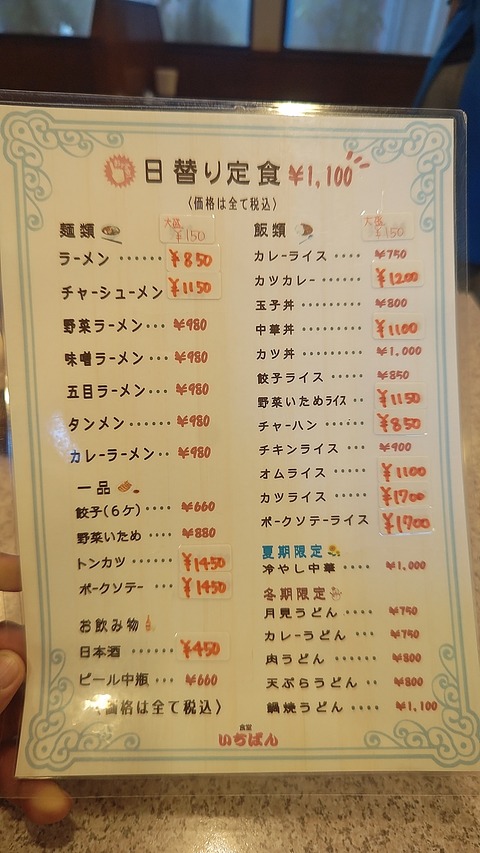 日替り定食 ¥1,100
〈価格は全て税込〉
麺類 大盛 ¥150
ラーメン ······ ¥850
チャーシューメン ¥1150
野菜ラーメン··· ¥980
味噌ラーメン··· ¥980
五目ラーメン··· ¥980
タンメン ······ ¥980
カレーラーメン·· ¥980
一品
餃子(6ケ) ···· ¥660
野菜いため ···· ¥880
トンカツ ······ ¥1450
ポークソテー ··· ¥1450
お飲み物
日本酒 ······· ¥450
ビール中瓶 ···· ¥660
〈価格は全て税込〉
飯類 大盛 ¥150
カレーライス ···· ¥750
カツカレー ······ ¥1200
玉子丼 ········· ¥800
中華丼 ········· ¥1100
カツ丼 ·········· ¥1,000
餃子ライス ····· ¥850
野菜いためライス ·· ¥1150
チャーハン ······ ¥850
チキンライス ···· ¥900
オムライス ······ ¥1100
カツライス ······ ¥1700
ポークソテーライス ¥1700
夏期限定
冷やし中華 ···· ¥1,000
冬期限定
月見うどん ···· ¥750
カレーうどん ··· ¥750
肉うどん ······ ¥800
天ぷらうどん ·· ¥800
鍋焼うどん ···· ¥1,100
食堂
いちばん